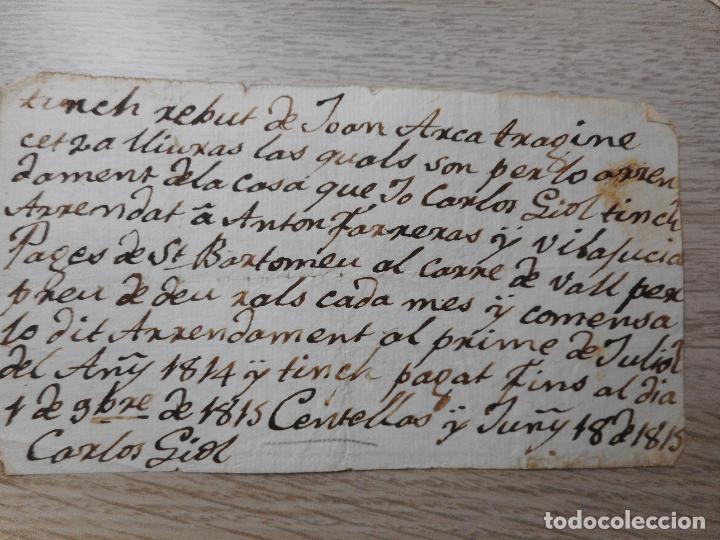 tinch rebut de Joan Arca tragine
cet 2a lliuras las quals son per lo arren
dament dela casa que Jo Carlos Giol tinch
Arrendat â Anton Farreras ÿ Vilasucia
Pages de St Bartomeu al Carre de Vall per
preu de deu rals cada mes ÿ comensa
lo dit Arrendament al prime de Juliol
del Añÿ 1814 ÿ tinch pagat fins al dia
1 de 9bre de 1815 Centellas ÿ Juñÿ 18 de 1815
Carlos Giol
todocoleccion